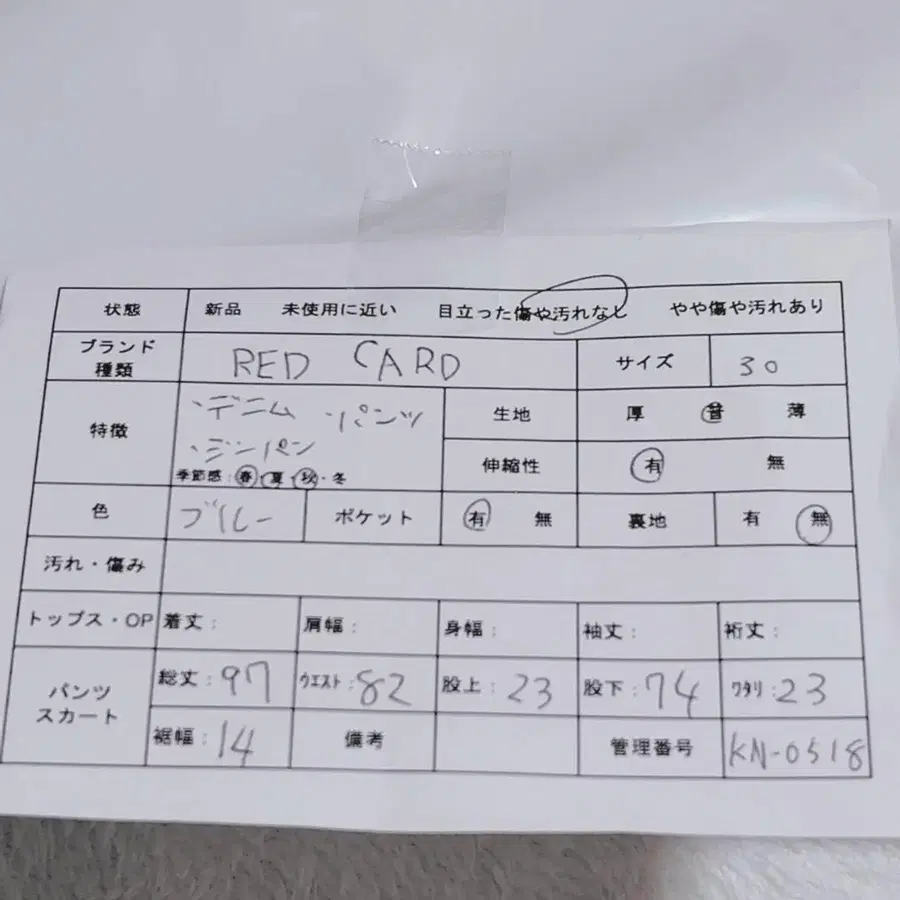 状態 新品 未使用に近い 目立った傷や汚れなし やや傷や汚れあり
ブランド
種類 RED CARD サイズ 30
特徴 ・デニム ・パンツ
・ジーパン
季節感:春・夏・秋・冬
生地 厚 普 薄
伸縮性 有 無
色 ブルー ポケット 有 無 裏地 有 無
汚れ・傷み
トップス・OP 着丈: 肩幅: 身幅: 袖丈: 裄丈:
パンツ
スカート
総丈:97 ウエスト:82 股上:23 股下:74 ワタリ:23
裾幅:14 備考 管理番号 KN-0518